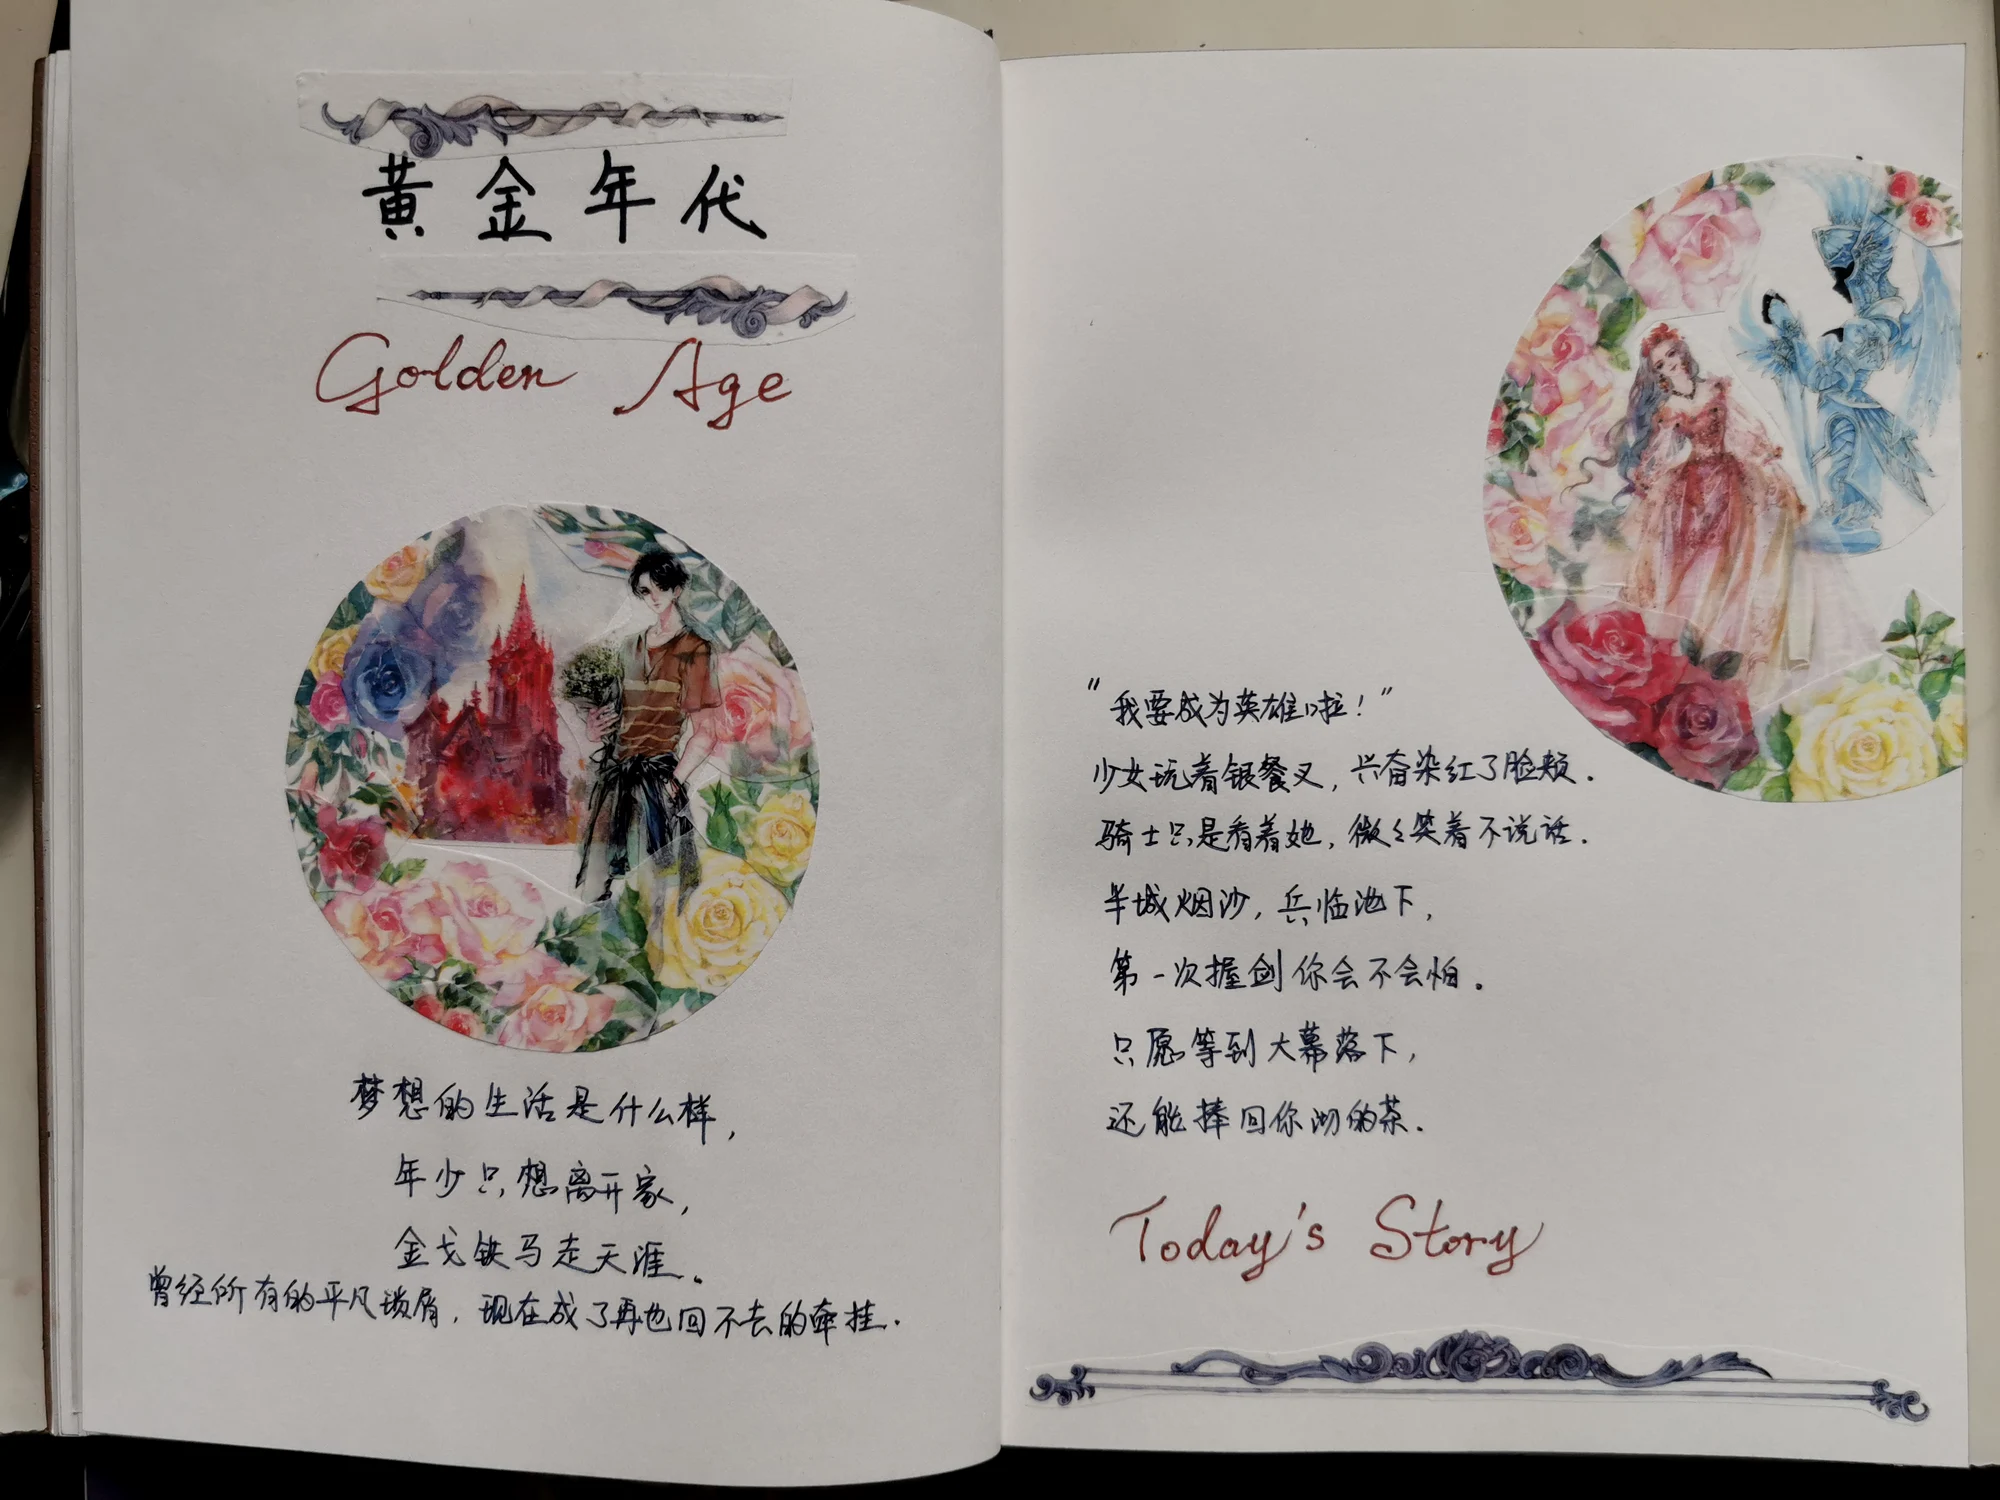 黄金年代
Golden Age
梦想的生活是什么样，
年少只想离开家，
金戈铁马走天涯。
曾经所有的平凡琐屑，现在成了再也回不去的牵挂．
“我要成为英雄啦！”
少女玩着银餐叉，兴奋染红了脸颊．
骑士只是看着她，微々笑着不说话．
半城烟沙，兵临池下，
第一次握剑你会不会怕．
只愿等到大幕落下，
还能捧回你沏的茶．
Today's Story